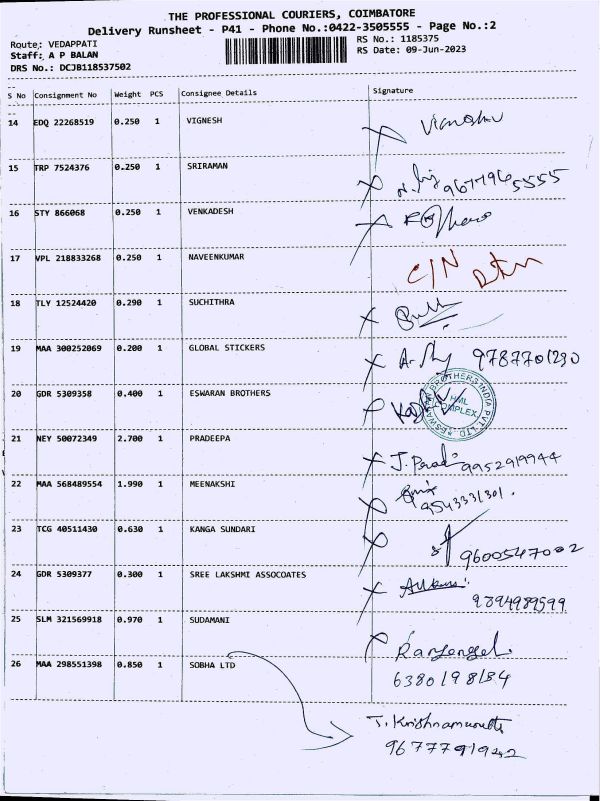 THE PROFESSIONAL COURIERS, COIMBATORE
Delivery Runsheet - P41 - Phone No.:0422-3505555 - Page No.:2
Route: VEDAPPATI
RS No.: 1185375
Staff: A P BALAN
RS Date: 09-Jun-2023
DRS No.: DCJB118537502
S No Consignment No Weight PCS Consignee Details Signature
14 EDQ 22268519 0.250 1 VIGNESH
15 TRP 7524376 0.250 1 SRIRAMAN
16 STY 866068 0.250 1 VENKADESH
17 VPL 218833268 0.250 1 NAVEENKUMAR C/N
18 TLY 12524420 0.290 1 SUCHITHRA
19 MAA 300252069 0.200 1 GLOBAL STICKERS 9787701290
20 GDR 5309358 0.400 1 ESWARAN BROTHERS
ESWARAN BROTHERS INDIA PVT. LTD
HML
COMPLEX
21 NEY 50072349 2.700 1 PRADEEPA 9952919944
22 MAA 568489554 1.990 1 MEENAKSHI
23 TCG 40511430 0.630 1 KANGA SUNDARI 9600547002
24 GDR 5309377 0.300 1 SREE LAKSHMI ASSOCOATES
9894989599
25 SLM 321569918 0.970 1 SUDAMANI
26 MAA 298551398 0.850 1 SOBHA LTD 6380198184
T. Krishnamurthi
9677791942